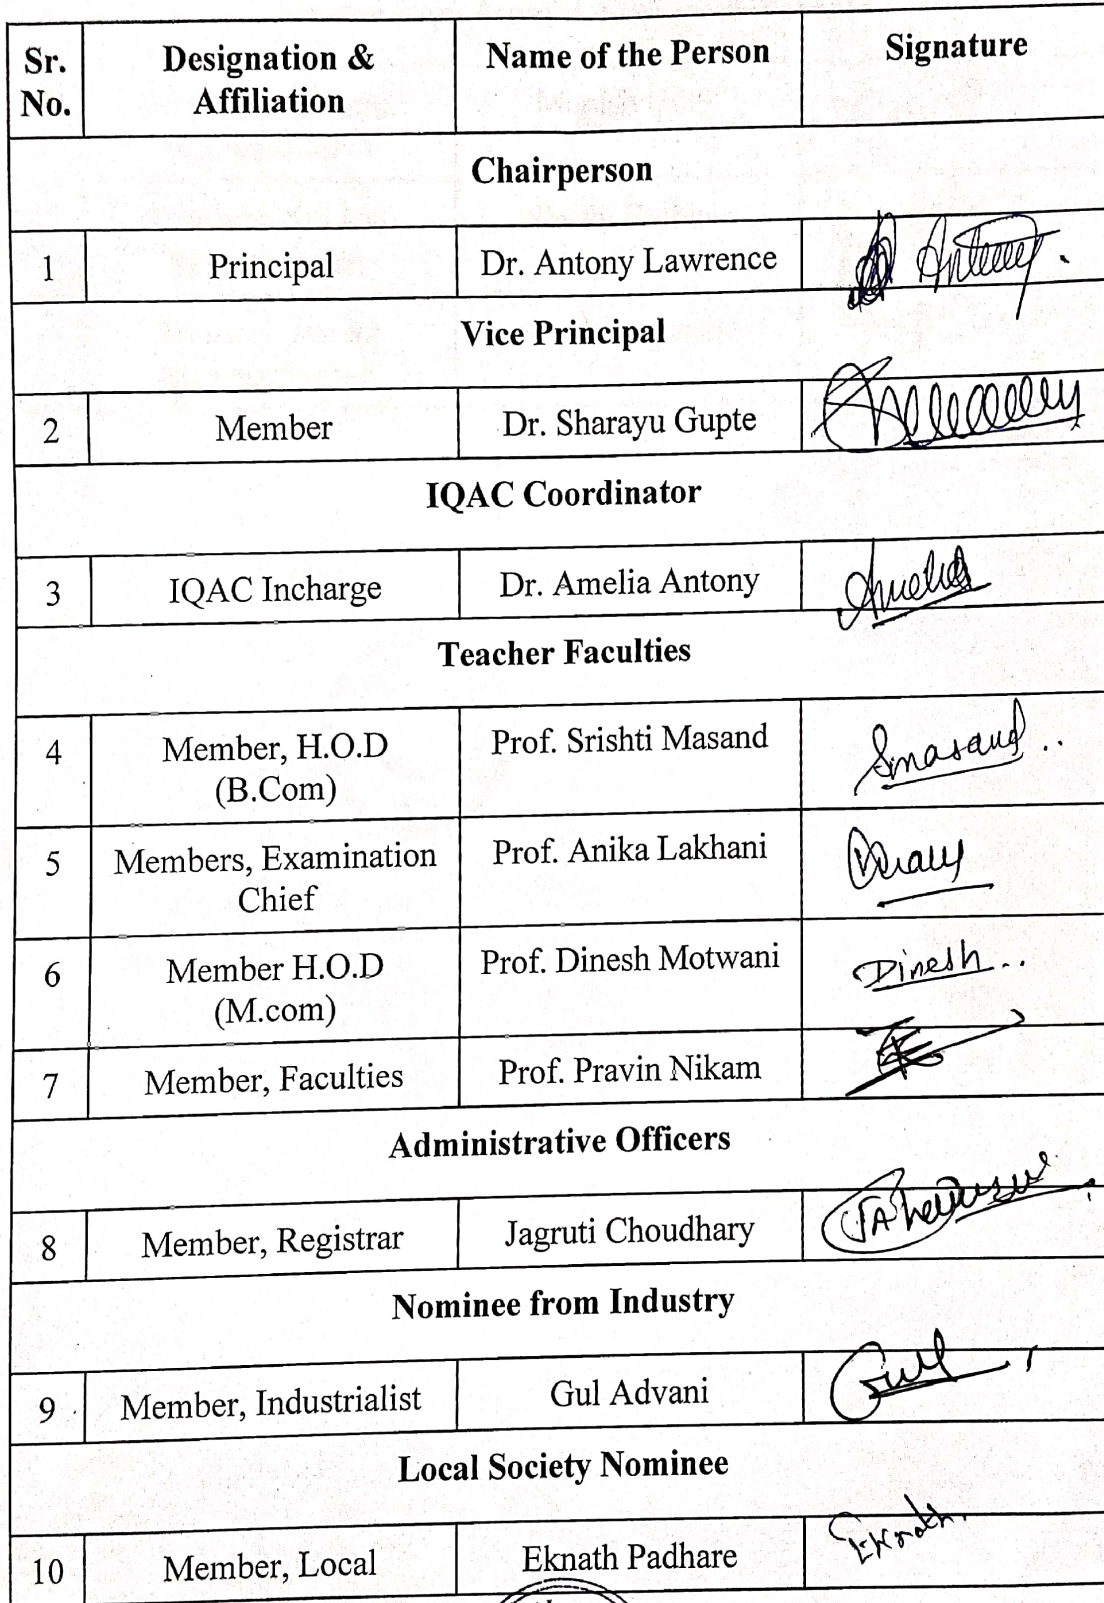 Sr. No. Designation & Affiliation Name of the Person Signature
Chairperson
1 Principal Dr. Antony Lawrence Antony
Vice Principal
2 Member Dr. Sharayu Gupte
IQAC Coordinator
3 IQAC Incharge Dr. Amelia Antony Amelia
Teacher Faculties
4 Member, H.O.D (B.Com) Prof. Srishti Masand Smasand
5 Members, Examination Chief Prof. Anika Lakhani
6 Member H.O.D (M.com) Prof. Dinesh Motwani Dinesh
7 Member, Faculties Prof. Pravin Nikam
Administrative Officers
8 Member, Registrar Jagruti Choudhary
Nominee from Industry
9 Member, Industrialist Gul Advani Gul
Local Society Nominee
10 Member, Local Eknath Padhare Eknath